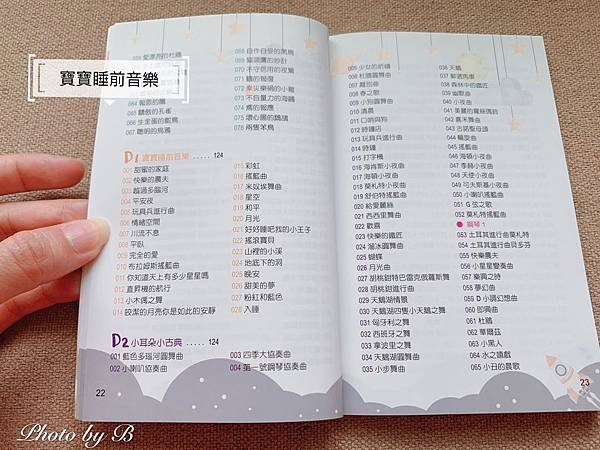 寶寶睡前音樂
059 愛漂亮的杜鵑
064 報恩的鵰
065 驕傲的孔雀
066 生金蛋的鵝
067 聰明的烏鴉
068 自作自受的黑鳥
069 貓頭鷹的妙計
070 不守信用的夜鶯
071 鶴的報復
072 幸災樂禍的小雞
073 不自量力的海鷗
074 鷹的報應
075 壞心腸的鵜鶘
076 兩隻笨鳥
D1 寶寶睡前音樂 ..... 124
001 甜蜜的家庭
002 快樂的農夫
003 越過多腦河
004 平安夜
005 玩具兵進行曲
006 情緒空間
007 川流不息
008 平臥
009 完全的愛
010 布拉姆斯搖籃曲
011 你知道天上有多少星星嗎
012 直昇機的航行
013 小木偶之舞
014 皎潔的月亮你是如此的安靜
015 彩虹
016 搖籃曲
017 米奴埃舞曲
018 星空
019 和平
020 月光
021 好好睡吧我的小王子
022 搖滾寶貝
023 山裡的小溪
024 地底下的洞
025 晚安
026 甜美的夢
027 粉紅和藍色
028 入睡
D2 小耳朵小古典 ..... 124
001 藍色多瑙河圓舞曲
002 小喇叭協奏曲
003 四季大協奏曲
004 第一號鋼琴協奏曲
22
005 少女的祈禱
006 杜鵑圓舞曲
007 離別曲
008 春之歌
009 小狗圓舞曲
010 清晨
011 口哨與狗
012 時鐘店
013 玩具兵進行曲
014 時鐘
015 打字機
016 海肯斯小夜曲
017 海頓小夜曲
018 莫札特小夜曲
019 舒伯特搖籃曲
020 給愛麗絲
021 西西里舞曲
022 歡喜
023 快樂的鐵匠
024 溜冰圓舞曲
025 蝴蝶
026 月光曲
027 胡桃鉗特巴雷克俄羅斯舞
028 胡桃鉗進行曲
029 天鵝湖情景
030 天鵝湖四隻小天鵝之舞
031 匈牙利之舞
032 西班牙之舞
033 拿波里之舞
034 天鵝湖圓舞曲
035 小步舞曲
036 天鵝
037 郵遞馬車
038 森林中的鐵匠
039 幽默曲
040 小夜曲
041 美麗的羅絲瑪琳
042 嘉禾舞曲
043 古諾聖母頌
044 輪旋曲
045 搖籃曲
046 海頓小夜曲
047 李赫小夜曲
048 天使小夜曲
049 可夫斯基小夜曲
050 小喇叭搖籃曲
051 G 弦之歌
052 莫札特搖籃曲
● 鋼琴 1
053 土耳其進行曲莫札特
054 土耳其進行曲貝多芬
055 快樂農夫
056 小星星變奏曲
057 樂興之時
058 夢幻曲
059 D 小調幻想曲
060 即興曲
061 杜鵑
062 華爾茲
063 小黑人
064 水之嬉戲
065 小丑的晨歌
23
Photo by B